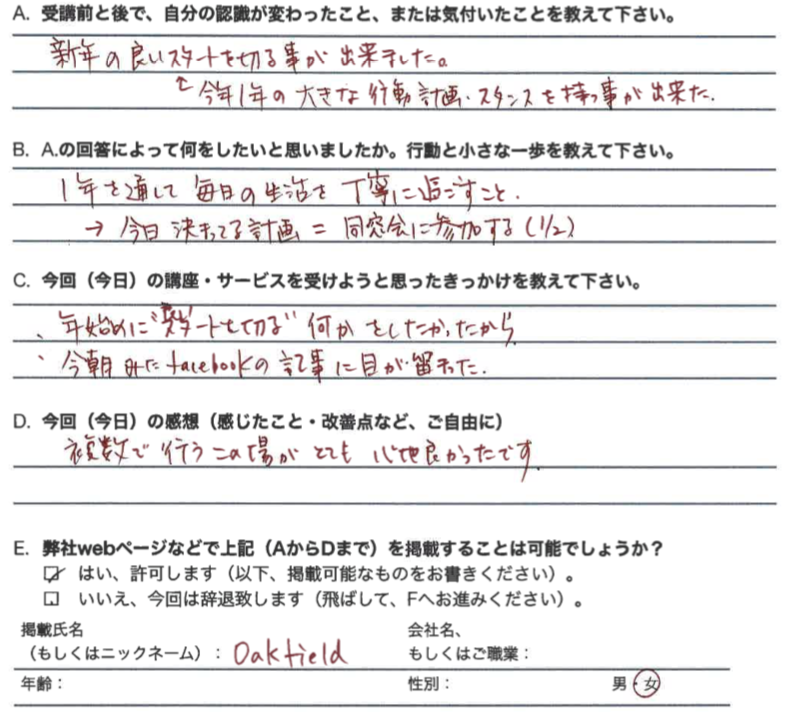 A. 受講前と後で、自分の認識が変わったこと、または気付いたことを教えて下さい。
新年の良いスタートを切る事が出来ました。
今年1年の大きな行動計画・スタンスを持つ事が出来た.
B. A.の回答によって何をしたいと思いましたか。行動と小さな一歩を教えて下さい。
1年を通して毎日の生活を丁寧に過ごすこと.
→ 今日決まってる計画 = 同窓会に参加する (1/2)
C. 今回（今日）の講座・サービスを受けようと思ったきっかけを教えて下さい。
、年始めに"スタートを切る"何かをしたかったから
、今朝みたfacebookの記事に目が留まった.
D. 今回（今日）の感想（感じたこと・改善点など、ご自由に）
複数で行うこの場がとても心地良かったです.
E. 弊社webページなどで上記（AからDまで）を掲載することは可能でしょうか？
☑ はい、許可します（以下、掲載可能なものをお書きください）。
□ いいえ、今回は辞退致します（飛ばして、Fへお進みください）。
掲載氏名 会社名、
（もしくはニックネーム）： Oakfield もしくはご職業：
年齢： 性別： 男・女